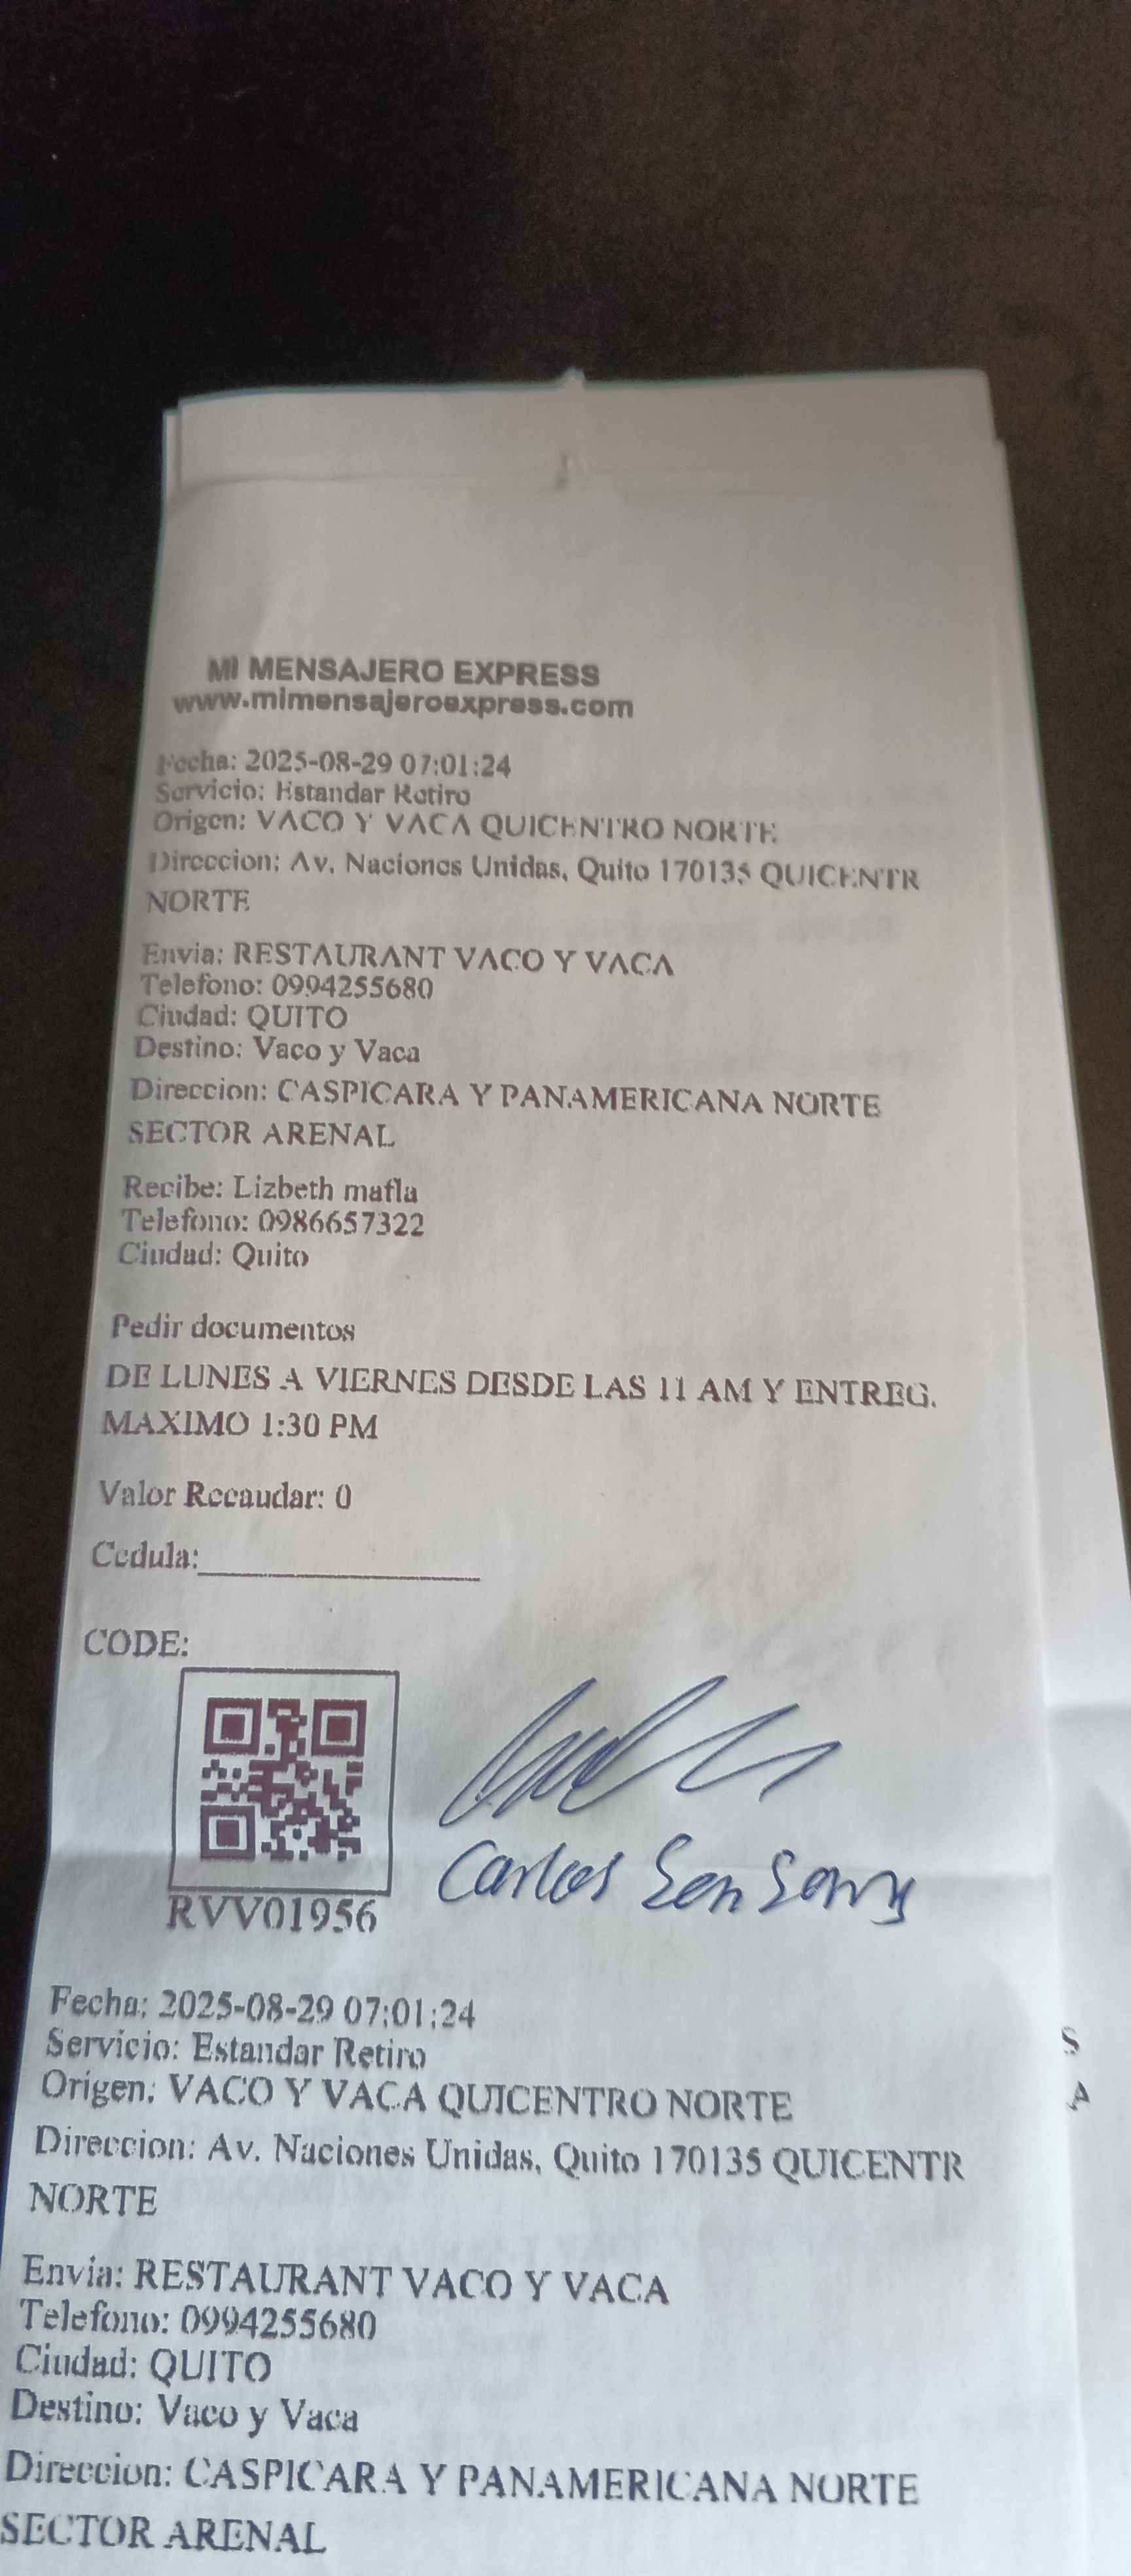 MI MENSAJERO EXPRESS
www.mimensajeroexpress.com
Fecha: 2025-08-29 07:01:24
Servicio: Estandar Retiro
Origen: VACO Y VACA QUICENTRO NORTE
Direccion: Av. Naciones Unidas, Quito 170135 QUICENTR
NORTE
Envia: RESTAURANT VACO Y VACA
Telefono: 0994255680
Ciudad: QUITO
Destino: Vaco y Vaca
Direccion: CASPICARA Y PANAMERICANA NORTE
SECTOR ARENAL
Recibe: Lizbeth mafla
Telefono: 0986657322
Ciudad: Quito
Pedir documentos
DE LUNES A VIERNES DESDE LAS 11 AM Y ENTREG.
MAXIMO 1:30 PM
Valor Recaudar: 0
Cedula:
CODE:
Carlos
RVV01956
Fecha: 2025-08-29 07:01:24
Servicio: Estandar Retiro
Origen: VACO Y VACA QUICENTRO NORTE
Direccion: Av. Naciones Unidas, Quito 170135 QUICENTR
NORTE
Envia: RESTAURANT VACO Y VACA
Telefono: 0994255680
Ciudad: QUITO
Destino: Vaco y Vaca
Direccion: CASPICARA Y PANAMERICANA NORTE
SECTOR ARENAL
S
A